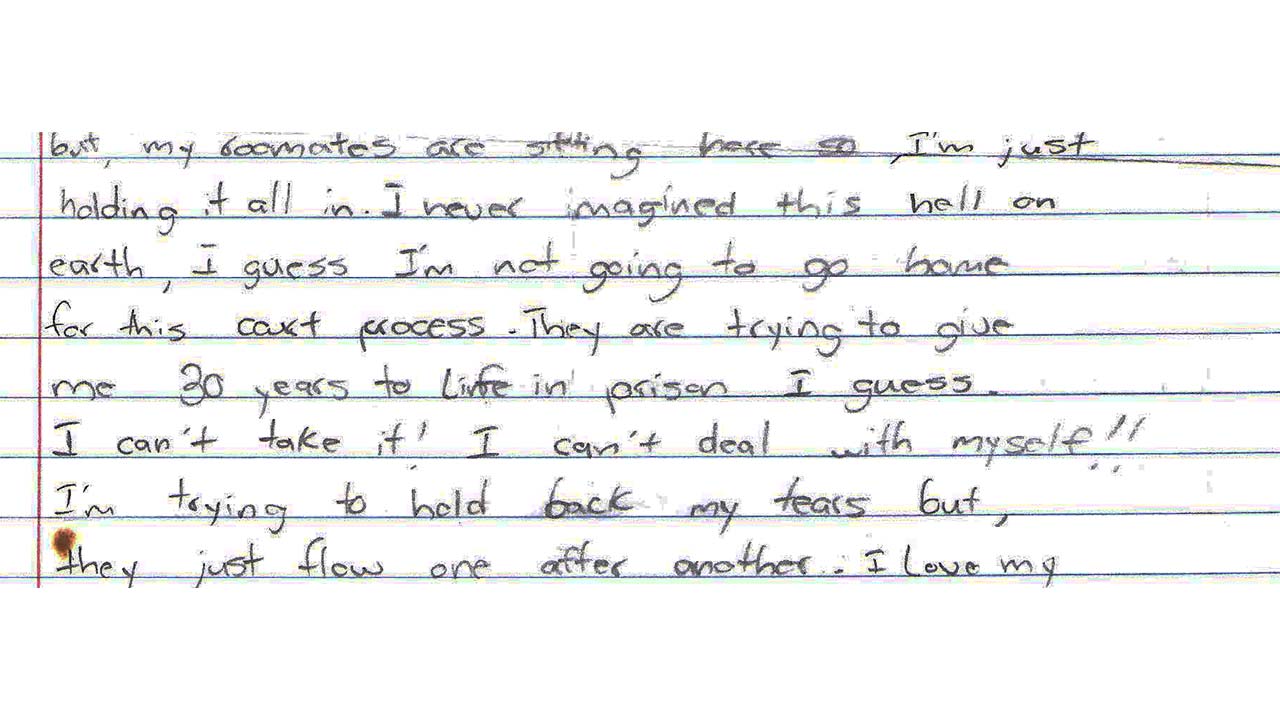 but, my roomates are sitting here so, I'm just
holding it all in. I never imagined this hell on
earth, I guess I'm not going to go home
for this court process. They are trying to give
me 30 years to Life in prison I guess.
I can't take it! I can't deal with myself!!
I'm trying to hold back my tears but,
they just flow one after another. I Love my